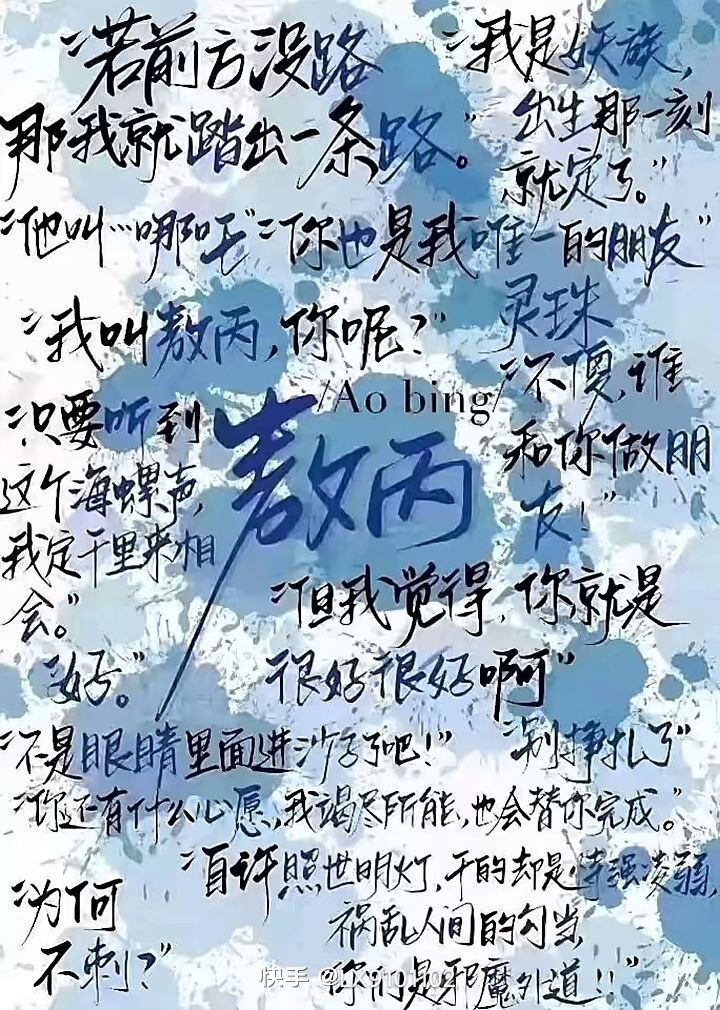 “若前方没路
那我就踏出一条路。”
“我是妖族，
出生那一刻
就定了。”
“他叫…哪吒”“你也是我唯一的朋友”
“我叫敖丙，你呢？”
灵珠
/Ao bing/
敖丙
“不傻，谁
和你做朋
友！”
“只要听到
这个海螺声，
我定千里来相
会。”
“但我觉得，你就是
很好很好啊”
“好。”
“不是眼睛里面进沙子了吧！”
“别挣扎了”
“你还有什么心愿，我竭尽所能，也会替你完成。”
“自许照世明灯，干的却是恃强凌弱，
祸乱人间的勾当，
你们是邪魔外道！！”
“为何
不刺？”
快手 @LX9101102